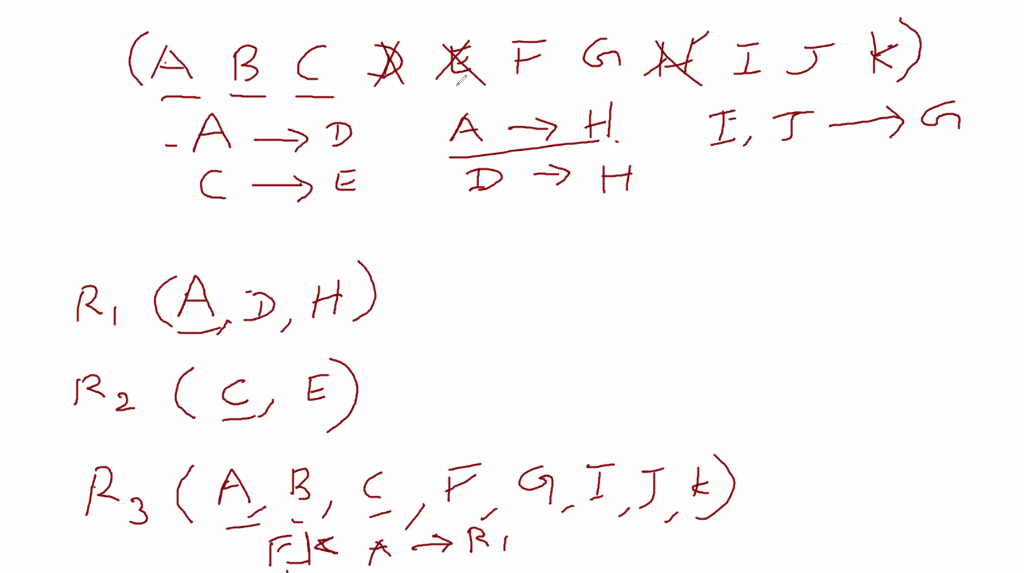 (A B C D E F G H I J K)
A → D A → H. I, J → G
C → E D → H
R1 (A, D, H)
R2 (C, E)
R3 (A, B, C, F, G, I, J, K)
FK A → R1